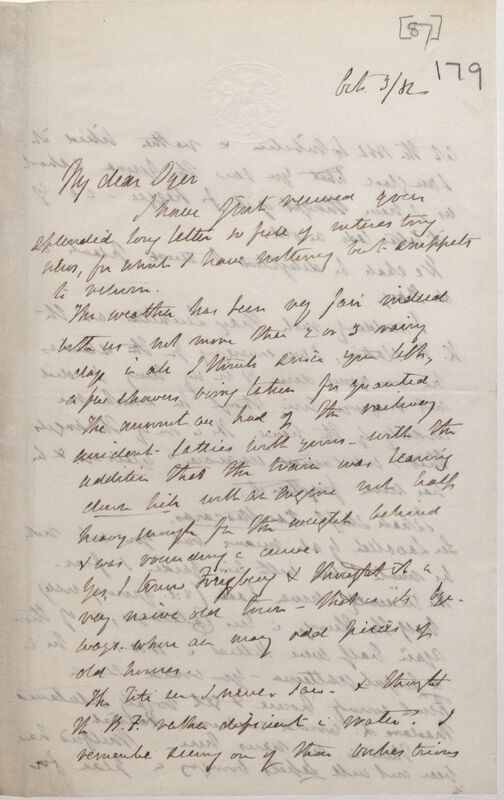 [87]
179
Oct. 3/82
My dear Dyer
I have just received your
splendid long letter so full of interesting
news, for which I have nothing but snippets
to return.
The weather has been very fair indeed
with us not more than 2 or 3 rainy
days in all I think since you left,
a few showers being taken for granted.
The account we had of the railway
accident tallies with yours – with the
addition that the train was tearing
down hill with an engine not half
heavy enough for the weight behind
& was rounding a curve
Yes I know Freiburg & thought it a
very naive old town – that is its bye-
ways. where are many odd pieces of
old houses
The Titi See I never saw. & thought
the B.F. rather deficient in water. I
remember seeing one of those